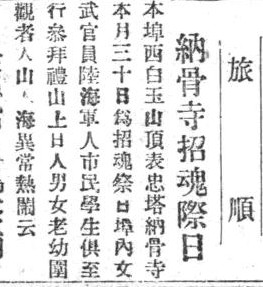 旅順
納骨寺招魂際日
本埠西白玉山頂表忠塔納骨寺
本月三十日爲招魂祭日埠內文
武官員陸海軍人市民學生俱至
行參拜禮山上日人男女老幼圍
觀者人山人海異常熱鬧云